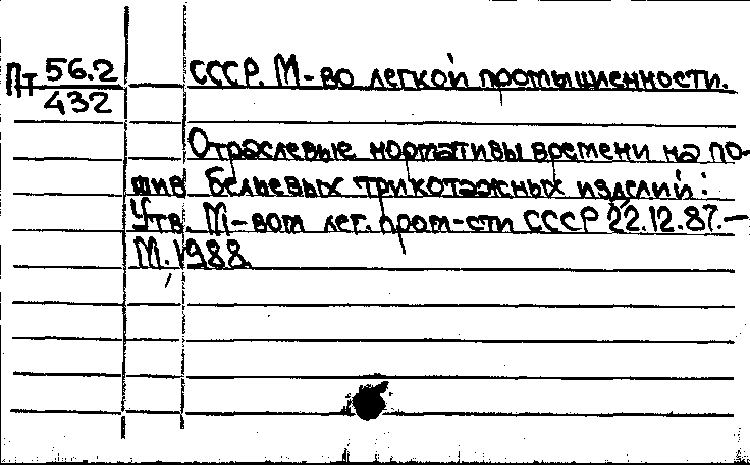 Пт 56.2
432
СССР. М-во легкой промышленности.
Отраслевые нормативы времени на по-
шив бельевых трикотажных изделий:
Утв. М-вом лег. пром-сти СССР 22.12.87.—
М., 1988.